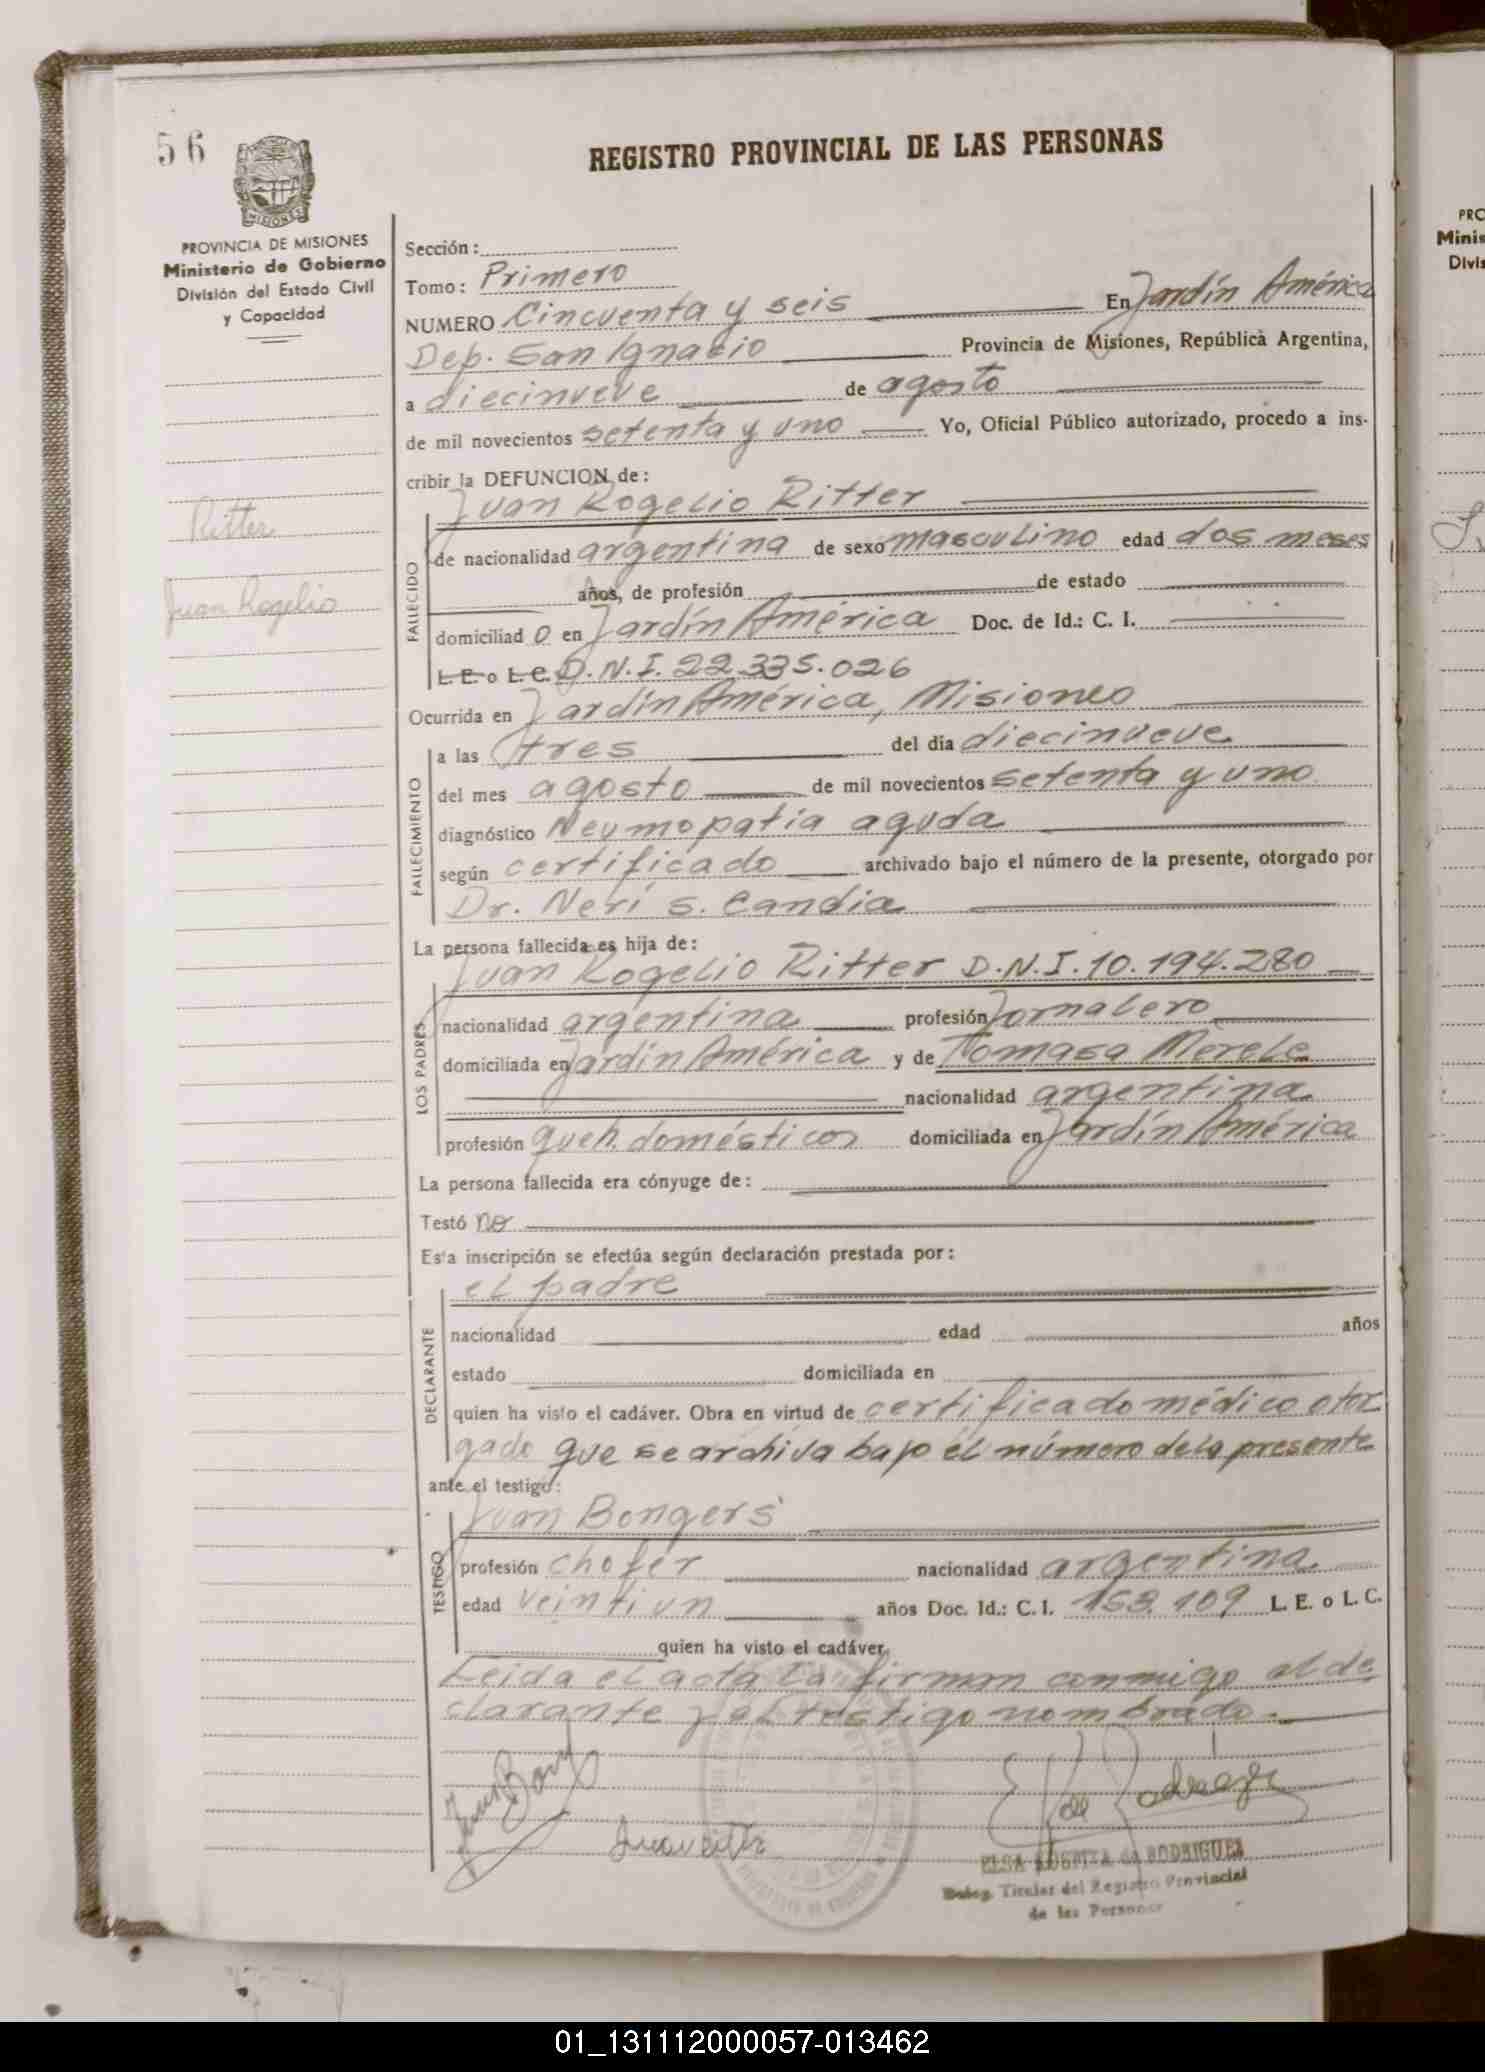 56
REGISTRO PROVINCIAL DE LAS PERSONAS
MISIONES
PROVINCIA DE MISIONES
Ministerio de Gobierno
División del Estado Civil
y Capacidad
Ritter
Juan Rogelio
Sección:
Tomo: Primero
NUMERO Cincuenta y seis En Jardín América
Dep. San Ignacio Provincia de Misiones, República Argentina,
a diecinueve de agosto
de mil novecientos setenta y uno Yo, Oficial Público autorizado, procedo a ins-
cribir la DEFUNCION de:
Juan Rogelio Ritter
FALLECIDO
de nacionalidad argentina de sexo masculino edad dos meses
años, de profesión de estado
domiciliad o en Jardín América Doc. de Id.: C. I.
L.E. o L.C. D.N.I. 22.335.026
Ocurrida en Jardín América, Misiones
FALLECIMIENTO
a las tres del día diecinueve
del mes agosto de mil novecientos setenta y uno
diagnóstico Neumopatía aguda
según certificado archivado bajo el número de la presente, otorgado por
Dr. Neri S. Candia
La persona fallecida es hija de:
Juan Rogelio Ritter D.N.I. 10.194.280
LOS PADRES
nacionalidad argentina profesión Jornalero
domiciliada en Jardín América y de Tomasa Merele
nacionalidad argentina
profesión queh. domésticos domiciliada en Jardín América
La persona fallecida era cónyuge de:
Testó no
Esta inscripción se efectúa según declaración prestada por:
el padre
DECLARANTE
nacionalidad edad años
estado domiciliada en
quien ha visto el cadáver. Obra en virtud de certificado médico otor
gado que se archiva bajo el número de la presente
ante el testigo:
Juan Bongers
TESTIGO
profesión chofer nacionalidad argentina
edad veintiun años Doc. Id.: C. I. 153.109 L. E. o L. C.
quien ha visto el cadáver.
Leida el acta la firman conmigo el de
clarante y el testigo nombrado.
ELSA de RODRIGUEZ
Deleg. Titular del Registro Provincial
de las Personas
PRO
Minis
Divis
01_131112000057-013462